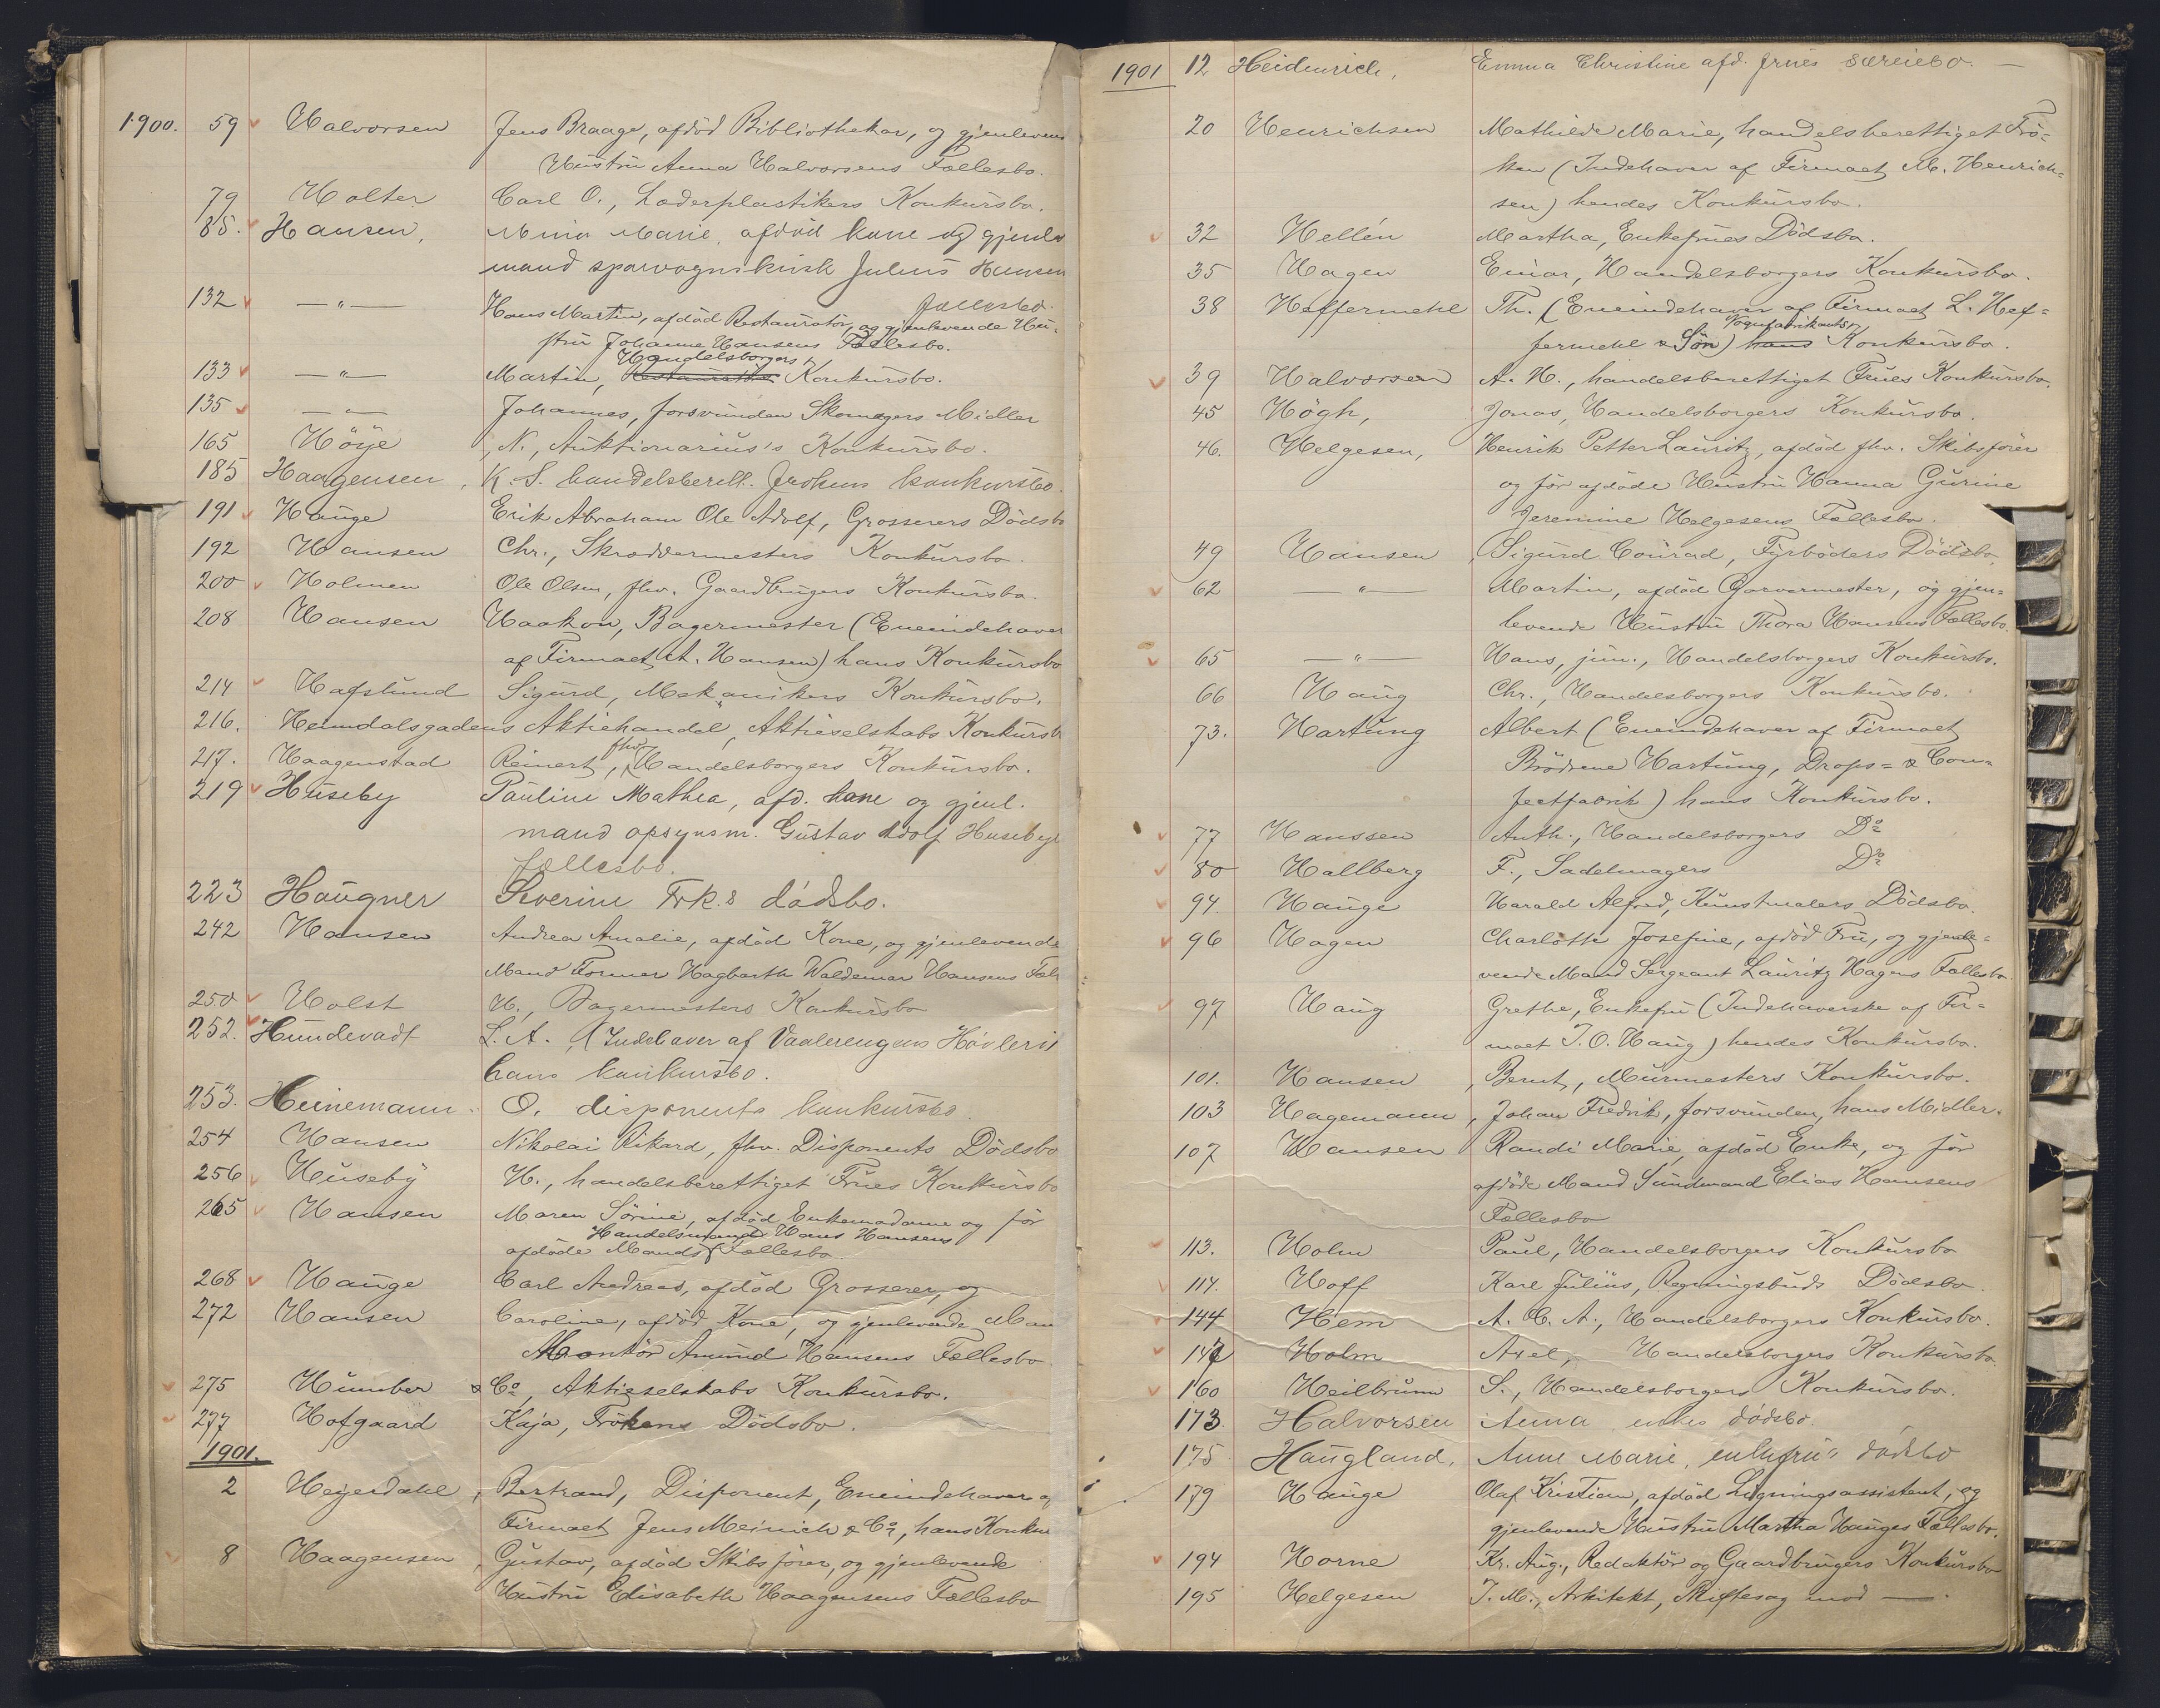 1900. 59 Halvorsen Jens Braage, afdöd Bibliothekar, og gjenlevende
Hustru Anna Halvorsens Fællesbo.
79 Holter Carl O., Læderplastikers Konkursbo.
85. Hansen, Mina Marie, afdöd kone og gjenl
mand sporvognskusk Julius Hansen
fællesbo.
132 — " — Hans Martin, afdöd Restauratör, og gjenlevende Hu-
stru Johanne Hansens Fællesbo.
133 — " — Martin, Handelsborgers Konkursbo.
135 — " — Johannes, forsvunden Skomagers Midler
165 Höye N., Auktionarius's Konkursbo.
185 Haagensen, K. S. handelsberett. frökens konkursbo.
191 Hauge Erik Abraham Ole Adolf, Grosserers Dödsbo
192 Hansen Chr., Skræddermesters Konkursbo.
200 Holmen Ole Olsen, fhv. Gaardbrugers Konkursbo.
208 Hansen Haakon, Bagermester (Eneindehaver
af Firmaet A. Hansen) hans Konkursbo
214 Hafslund Sigurd, Mekanikers Konkursbo.
216. Heimdalsgadens Aktiehandel, Aktieselskabs Konkursb
217. Haagenstad Reinert, fhv. Handelsborgers Konkursbo.
219 Huseby Pauline Mathea, afd. kone og gjenl.
mand opsynsm. Gustav Adolf Husebys
fællesbo.
223 Haugner Severine Frk.s dödsbo.
242 Hansen Andrea Amalie, afdöd Kone, og gjenlevende
Mand Former Hagbarth Waldemar Hansens Fæll
250 Holst H., Bagermesters Konkursbo
252. Hundevadt L. A. (Indehaver af Vaalerengens Høvleri)
hans konkursbo.
253. Heinemann O. disponents konkursbo.
254 Hansen Nikolai Rikard, fhv. Disponents Dödsbo
256 Huseby H., handelsberettiget Frues Konkursbo
265 Hansen Maren Sörine, afdöd Enkemadame og för
afdöde Mands Handelsmand Hans Hansens Fællesbo
268 Hauge Carl Andreas, afdöd Grosserer, og
272 Hansen Caroline, afdöd Kone, og gjenlevende Man
Montör Amund Hansens Fællesbo.
275 Humber & Co, Aktieselskabs Konkursbo.
277 Hofgaard Kaja, Frökens Dödsbo.
1901.
2 Heyerdahl, Bertrand, Disponent, Eneindehaver af
Firmaet Jens Meinich & Co, hans Konkur
8 Haagensen, Gustav, afdöd Skibsförer, og gjenlevende
Hustru Elisabeth Haagensens Fællesbo
1901 12 Heidenrich, Emma Christine afd. frues særeiebo. —
20 Henrichsen Mathilde Marie, handelsberettiget Frö-
ken (Indehaver af Firmaet M. Henrich-
sen) hendes Konkursbo.
32 Hellén Martha, Enkefrues Dödsbo.
35 Hagen Einar, Handelsborgers Konkursbo.
38 Heffermehl Th. (Eneindehaver af Firmaet L. Hef-
fermehl & Sön) hans Vognfabrikants Konkursbo.
39 Halvorsen A. H., handelsberettiget Frues Konkursbo.
45 Högh, Jonas, Handelsborgers Konkursbo.
46. Helgesen, Henrik Petter Lauritz, afdöd fhv. Skibsförer
og för afdöde Hustru Hanna Gurine
Jeremine Helgesens Fællesbo.
49 Hansen, Sigurd Conrad, Fyrböders Dödsbo.
62 — " — Martin, afdöd Garvermester, og gjen-
levende Hustru Thora Hansens Fællesbo.
65 — " — Hans, jun., Handelsborgers Konkursbo.
66 Haug Chr., Handelsborgers Konkursbo.
73. Hartung Albert (Eneindehaver af Firmaet
Brödrene Hartung, Drops- & Con-
fectfabrik) hans Konkursbo.
77 Hanssen Anth., Handelsborgers Do
80 Hallberg F., Sadelmagers Do
94. Hauge Harald Alfred, Kunstmalers Dödsbo.
96 Hagen Charlotte Josefine, afdöd Fru, og gjenle-
vende Mand Sergeant Lauritz Hagens Fællesbo.
97 Haug Grethe, Enkefru (Indehaverske af Fir-
maet T. O. Haug) hendes Konkursbo.
101. Hansen, Bernt, Murmesters Konkursbo.
103 Hagemann, Johan Fredrik, forsvunden, hans Midler.
107 Hansen Randi Marie, afdöd Enke, og för
afdöde Mand Sundmand Elias Hansens
Fællesbo
113. Holm Paul, Handelsborgers Konkursbo
114. Hoff Karl Julius, Regningsbuds Dödsbo.
144 Hem A. C. A., Handelsborgers Konkursbo.
147 Holm Axel, Handelsborgers Konkursbo.
160 Heilbrunn S., Handelsborgers Konkursbo.
173 Halvorsen Anna enkes dödsbo.
175 Haugland, Anne Marie, enkefru's dödsbo
179 Hauge Olaf Kristian, afdöd Ligningsassistent, og
gjenlevende Hustru Martha Hauges Fællesbo.
194 Horne Kr. Aug., Redaktör og Gaardbrugers Konkursbo
195 Helgesen J. M., Arkitekt, Skiftesag mod —.